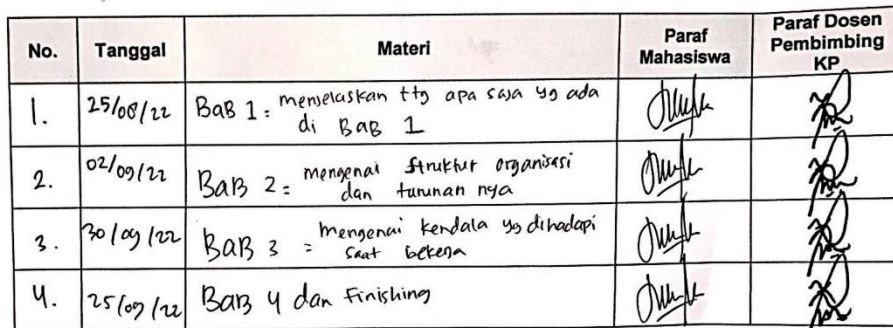 No. Tanggal Materi Paraf Mahasiswa Paraf Dosen Pembimbing KP
1. 25/08/22 BaB 1 : menjelaskan ttg apa saja yg ada
di BaB 1
2. 02/09/22 BaB 2 : mengenai struktur organisasi
dan turunan nya
3. 30/09/22 BaB 3 : mengenai kendala yg dihadapi
saat bekerja
4. 25/09/22 Bab 4 dan Finishing